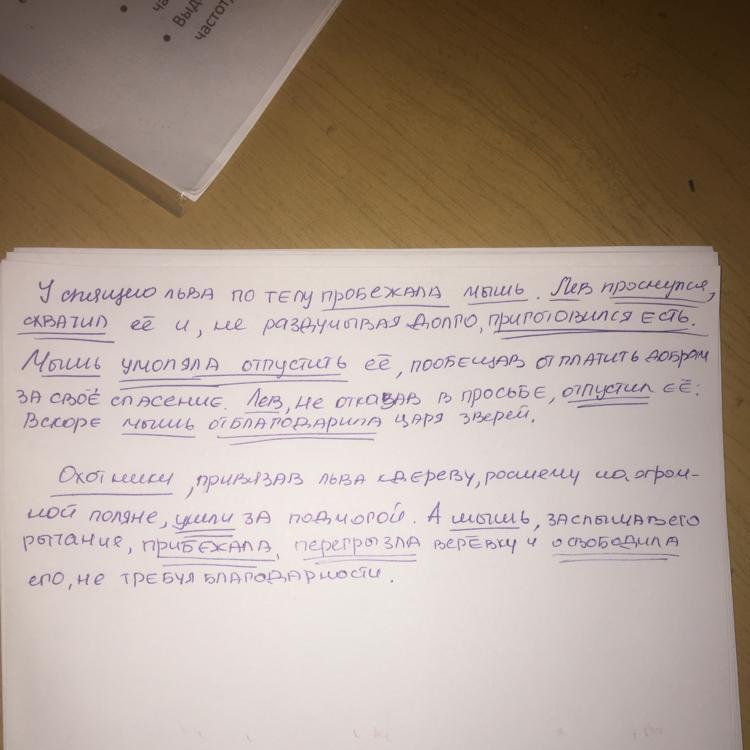 ча
• Выд
частот
У спящего льва по телу пробежала мышь. Лев проснулся,
схватил её и, не раздумывая долго, приготовился есть.
Мышь умоляла отпустить её, пообещав отплатить добром
за своё спасение. Лев, не отказав в просьбе, отпустил её.
Вскоре мышь отблагодарила царя зверей.
Охотники, привязав льва к дереву, росшему на огром-
ной поляне, ушли за подмогой. А мышь, заслышав его
рычание, прибежала, перегрызла верёвку и освободила
его, не требуя благодарности.